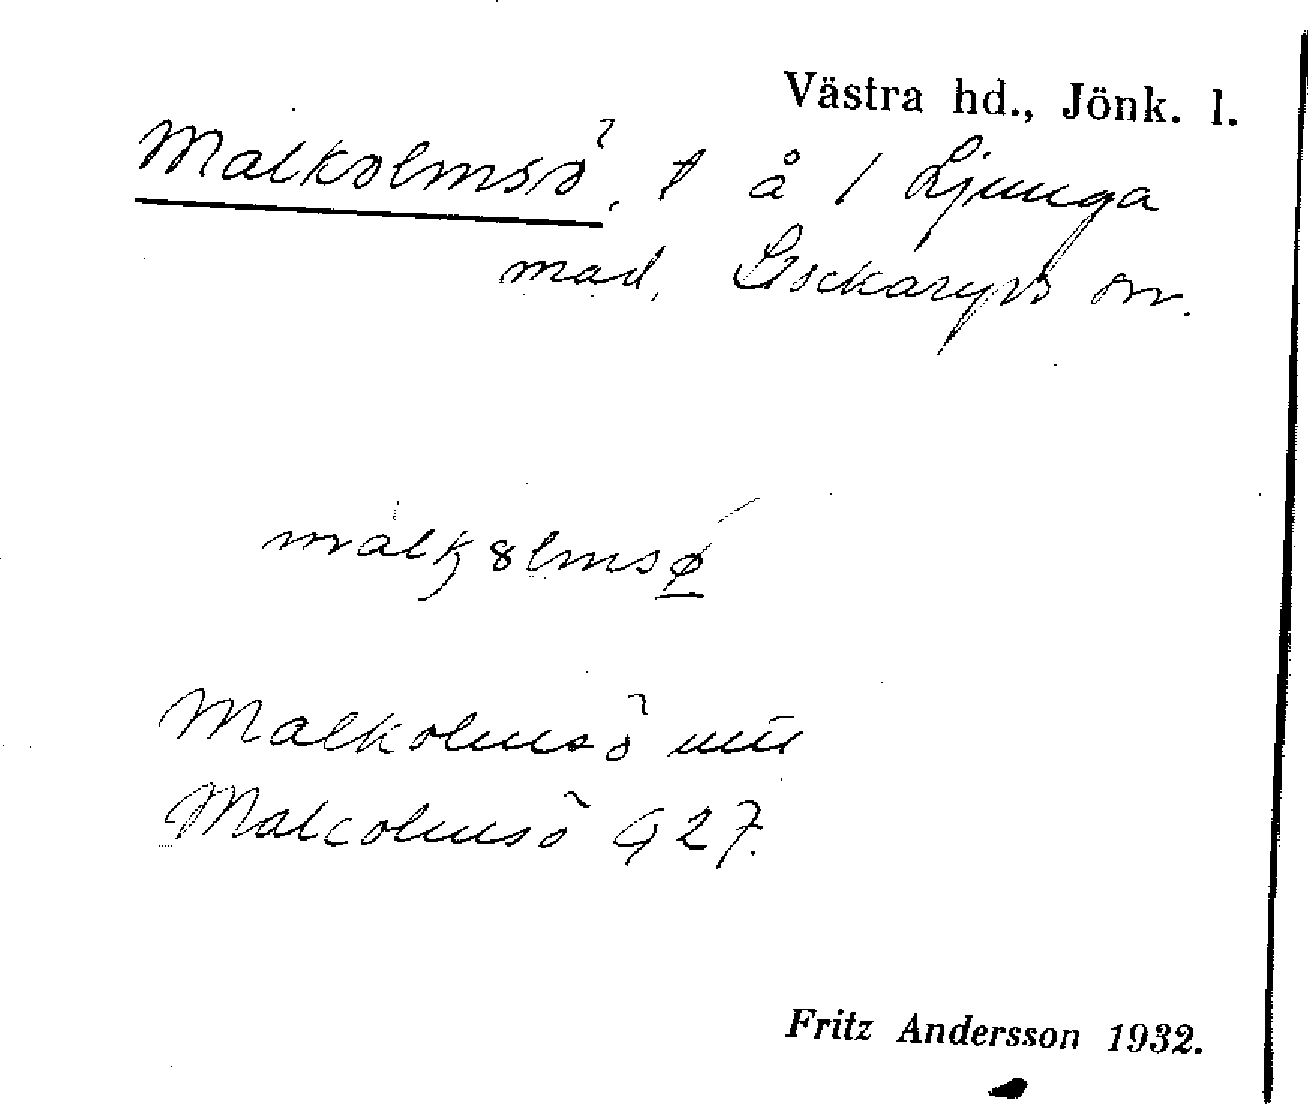 Västra hd., Jönk. l.
Malkolmsö, t å 1 Ljunga
mad, Bockaryds sn.
Malkolmsö
Malcolmsö G 27.
Fritz Andersson 1932.